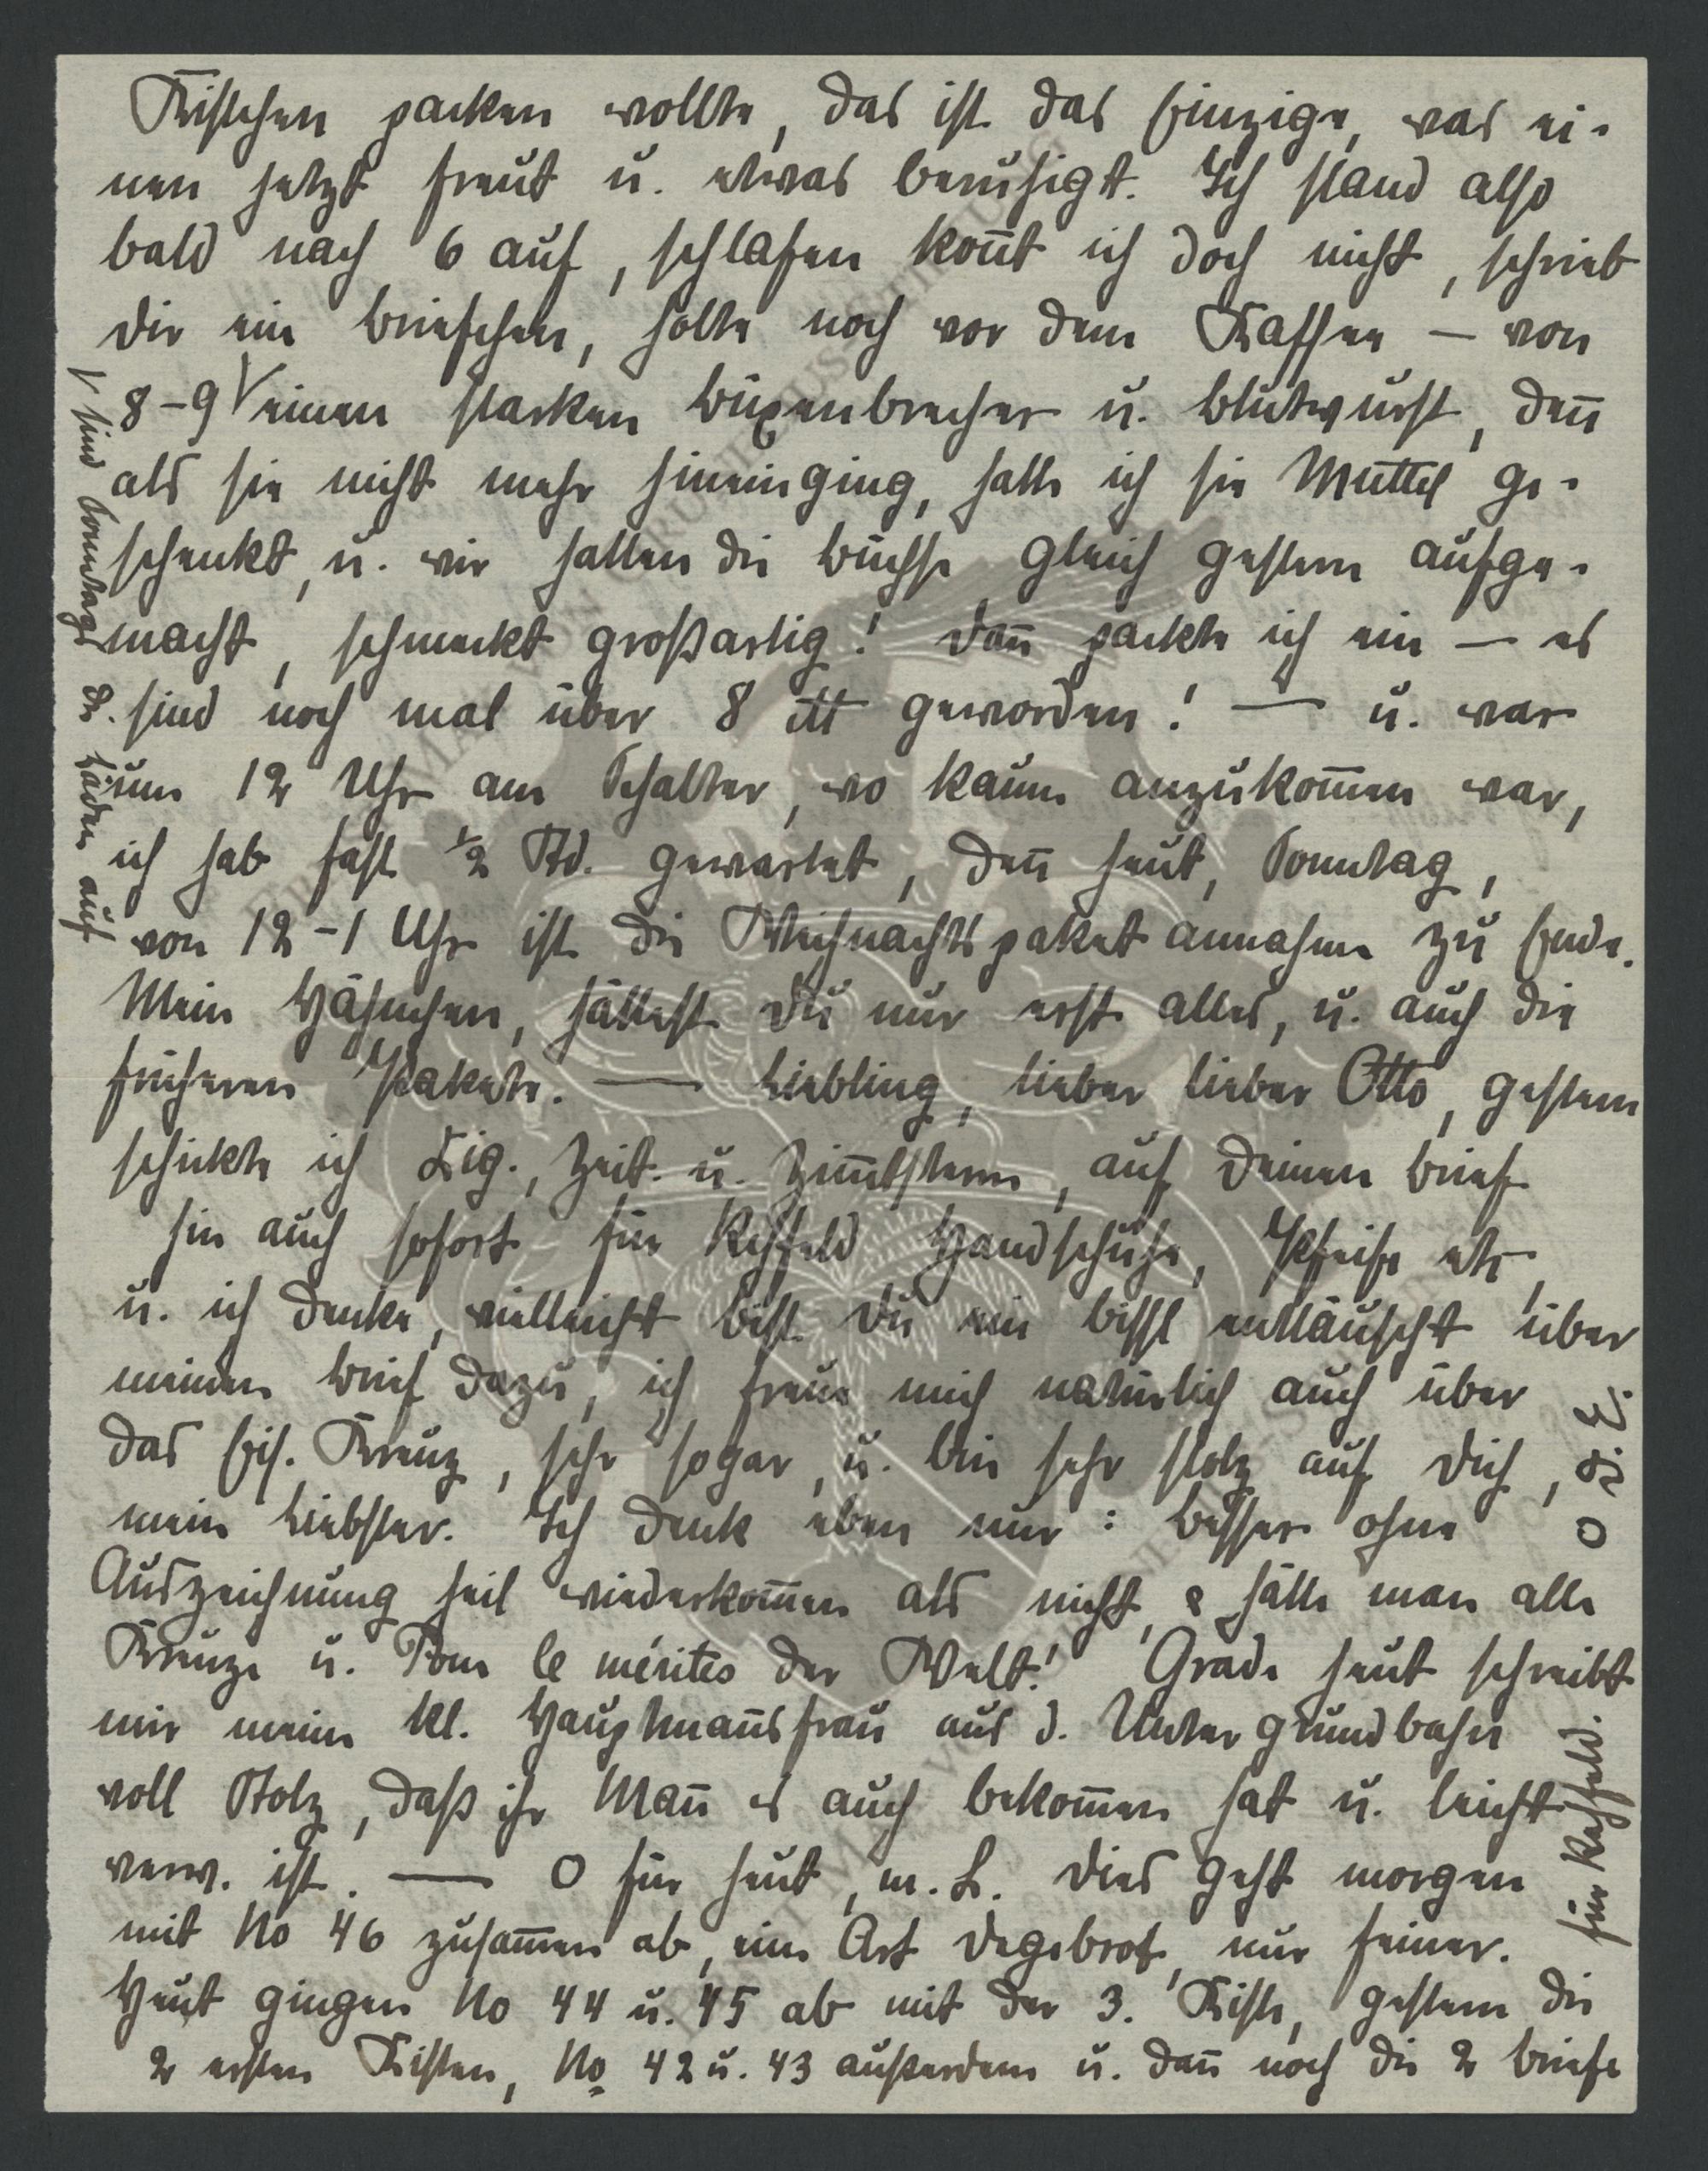 Kistchen packen wollte, das ist das Einzige, was ei-
nen jetzt freut u. etwas beruhigt. Ich stand also
bald nach 6 auf, schlafen konnt ich doch nicht, schrieb
Dir ein Briefchen, holte noch vor dem Kaffee – von
8–9 V einen starken Büxenbrecher u. Blutwurst, denn
als sie nicht mehr hineinging, hatte ich sie Muttel ge-
schenkt, u. wir hatten die Büchse gleich gestern aufge-
macht, schmeckt großartig! Dann packte ich ein – es
sind noch mal über 8 ℔ geworden! — u. war
um 12 Uhr am Schalter, wo kaum anzukommen war,
ich hab fast ½ Std. gewartet, denn heut, Sonntag,
von 12–1 Uhr ist die Weihnachtspaketannahme zu Ende.
Mein Häschen, hättest Du nur erst alles, u. auch die
früheren Pakete. — Liebling, lieber lieber Otto, gestern
schickte ich Zig., Zeit. u. Zimtstern, auf Deinen Brief
hin auch sofort für Rehfeld Handschuhe, Pfeife etc,
u. ich denke, vielleicht bist Du ein bissl enttäuscht über
meinen Brief dazu, ich freue mich natürlich auch über
das Eis. Kreuz, sehr sogar, u. bin sehr stolz auf Dich,
mein Liebster. Ich denk eben nur: besser ohne
Auszeichnung heil wiederkommen als nicht, & hätte man alle
Kreuze u. Pour le mérites der Welt! Grade heut schreibt
mir meine kl. Hauptmannsfrau aus d. Untergrundbahn
voll Stolz, daß ihr Mann es auch bekommen hat u. leicht
verw. ist. — O für heut, m. L. Dies geht morgen
mit No 46 zusammen ab, eine Art Degebrot, nur feiner.
Heut gingen No 44 u. 45 ab mit der 3. Kiste, gestern die
2 ersten Kisten, No 42 u. 43 außerdem u. dann noch die 2 Briefe
V sind Sonntags d. Läden auf
für Rehfeld.
O D. E.